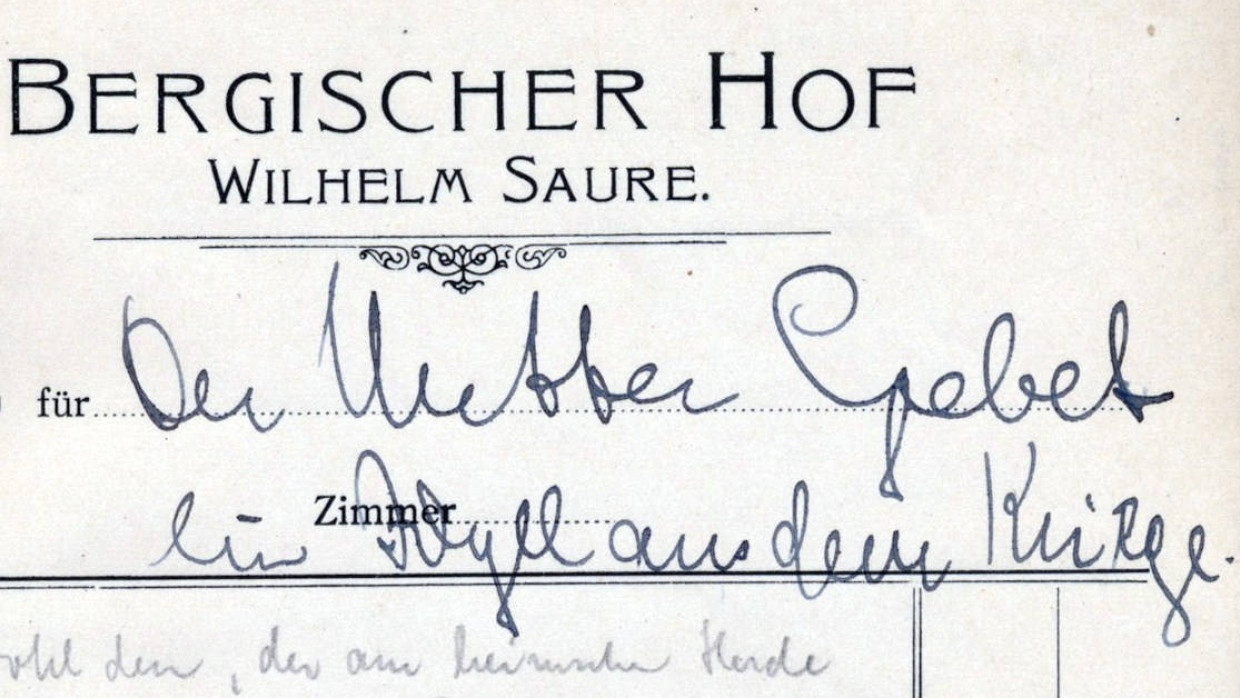 BERGISCHER HOF
WILHELM SAURE.
für Der Mutter Gebet
Zimmer
Ein Idyll aus dem Kriege.
wohl dem, der am heimischen Herde